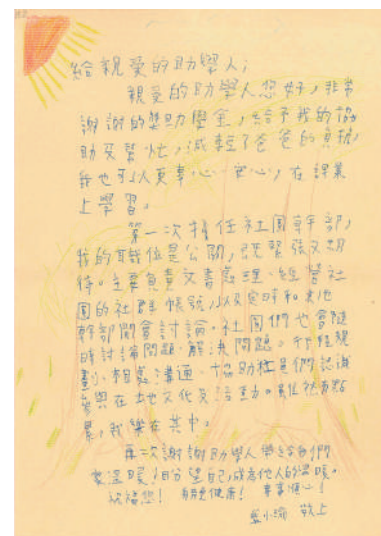 給親愛的助學人;
親愛的助學人您好,非常
謝謝的獎助學金,給予我的協
助及幫忙,減輕了爸爸的負擔,
我也可以更專心一安心,在課業
上學習。
第一次擔任社團幹部,
我的職位是公關,既緊張又期
待。主要負責文書處理、經營社
團的社群帳號,以及定時和其他
幹部開會討論。社團們也會隨
時討論問題、解決問題。
畫、相處溝通、協助社員們認識
參與在地文化及活動。雖然有點
累,我樂在其中。
再次謝謝助學人帶給我們
溫暖!盼望自己,成為他人的
祝福您! 身體健康! 事事順心!
敬上